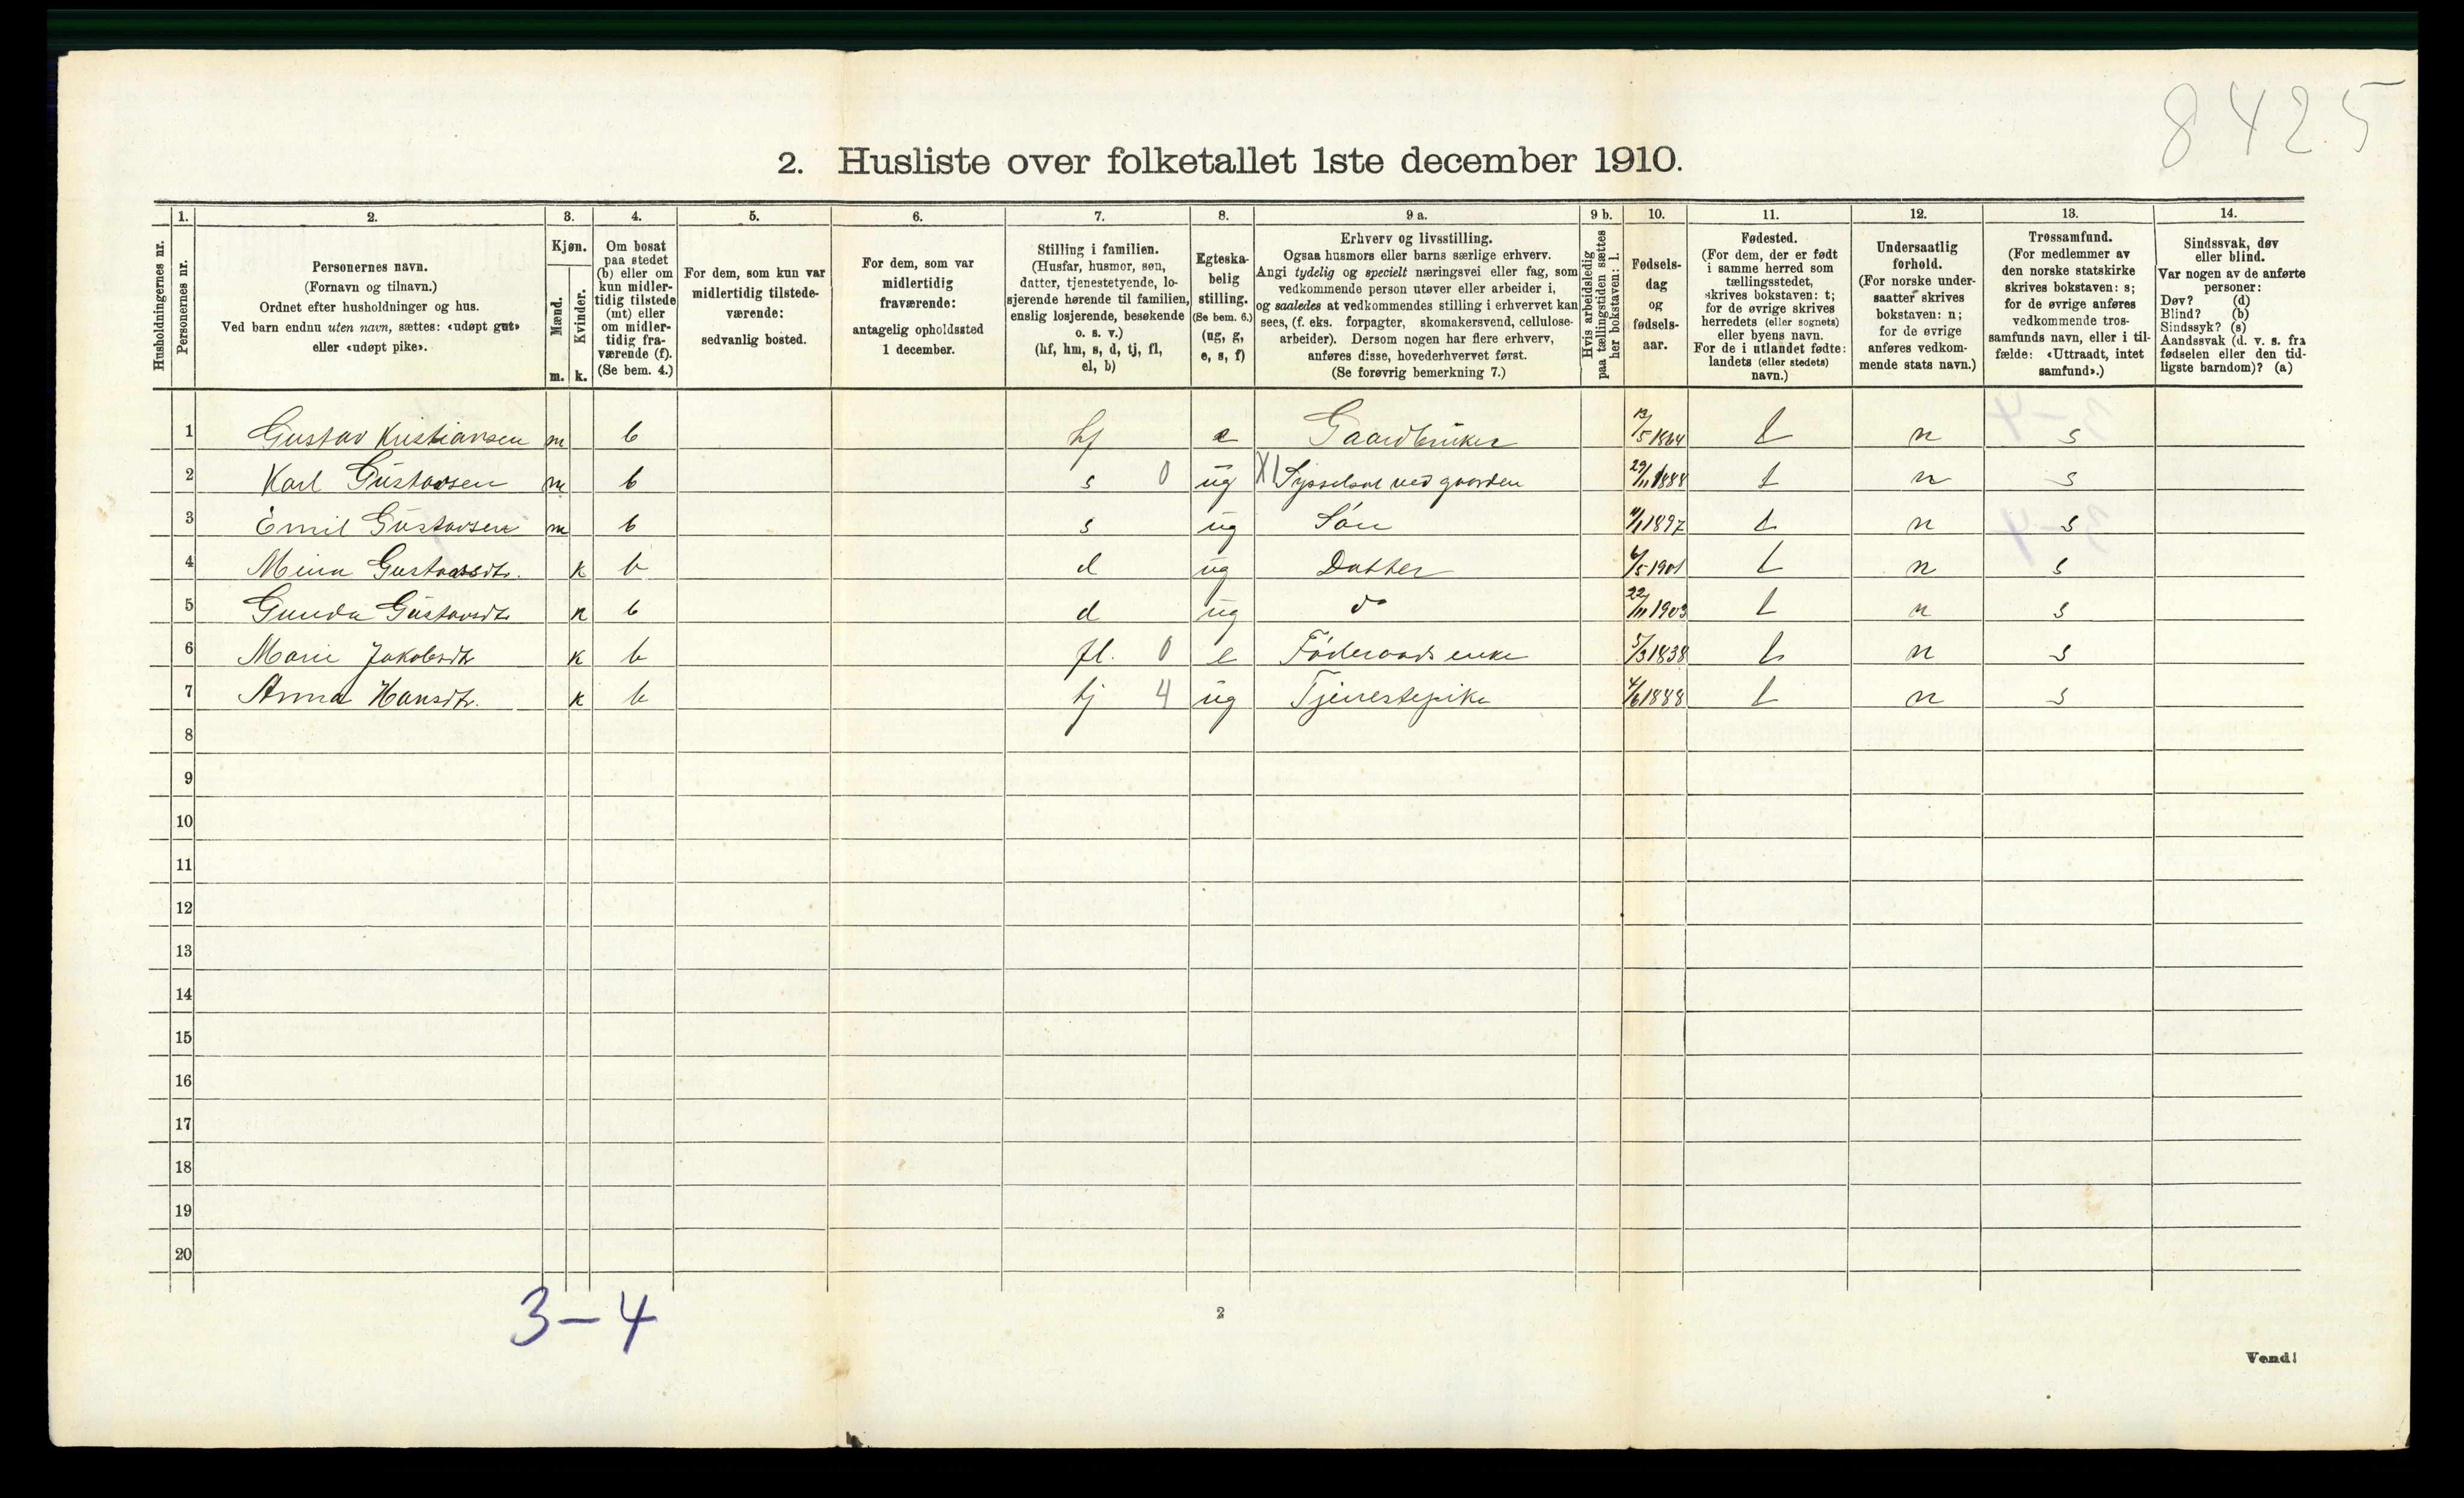 8425
2. Husliste over folketallet 1ste december 1910.
Husholdningernes nr.
1. Personernes nr.
2. Personernes navn. (Fornavn og tilnavn.) Ordnet efter husholdninger og hus. Ved barn endnu uten navn, sættes: «udøpt gut» eller «udøpt pike».
3. Kjøn. Mænd. m. Kvinder. k.
4. Om bosat paa stedet (b) eller om kun midlertidig tilstede (mt) eller om midlertidig fraværende (f). (Se bem. 4.)
5. For dem, som kun var midlertidig tilstedeværende: sedvanlig bosted.
6. For dem, som var midlertidig fraværende: antagelig opholdssted 1 december.
7. Stilling i familien. (Husfar, husmor, søn, datter, tjenestetyende, losjerende hørende til familien, enslig losjerende, besøkende o. s. v.) (hf, hm, s, d, tj, fl, el, b)
8. Egteskabelig stilling. (Se bem. 6.) (ug, g, e, s, f)
9 a. Erhverv og livsstilling. Ogsaa husmors eller barns særlige erhverv. Angi tydelig og specielt næringsvei eller fag, som vedkommende person utøver eller arbeider i, og saaledes at vedkommendes stilling i erhvervet kan sees, (f. eks. forpagter, skomakersvend, cellulosearbeider). Dersom nogen har flere erhverv, anføres disse, hovederhvervet først. (Se forøvrig bemerkning 7.)
9 b. Hvis arbeidsledig paa tællingstiden sættes her bokstaven: l.
10. Fødselsdag og fødselsaar.
11. Fødested. (For dem, der er født i samme herred som tællingsstedet, skrives bokstaven: t; for de øvrige skrives herredets (eller sognets) eller byens navn. For de i utlandet fødte: landets (eller stedets) navn.)
12. Undersaatlig forhold. (For norske undersaatter skrives bokstaven: n; for de øvrige anføres vedkommende stats navn.)
13. Trossamfund. (For medlemmer av den norske statskirke skrives bokstaven: s; for de øvrige anføres vedkommende trossamfunds navn, eller i tilfælde: «Uttraadt, intet samfund».)
14. Sindssvak, døv eller blind. Var nogen av de anførte personer: Døv? (d) Blind? (b) Sindssyk? (s) Aandssvak (d. v. s. fra fødselen eller den tidligste barndom)? (a)
1 Gustav Kristiansen m b hf e Gaardbruker 13/5 1864 t n s
2 Karl Gustavsen m b s 0 ug X Sysselsat ved gaarden 29/11 1888 t n s
3 Emil Gustavsen m b s ug Søn 1897 t n s
4 Mina Gustavsdt. k b d ug Datter 6/5 1901 t n s
5 Gunda Gustavsdt k b d ug do 22/11 1903 t n s
6 Marie Jakobsdt k b fl. 0 e Føderaads enke 5/3 1838 t n s
7 Anna Hansdt. k b tj 4 ug Tjenestepike 4/6 1888 t n s
8
9
10
11
12
13
14
15
16
17
18
19
20
3-4
2
Vend!